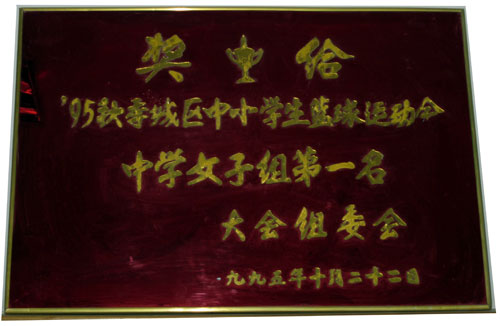 奖给
'95秋季城区中小学生篮球运动会
中学女子组第一名
大会组委会
九九五年十月二十二日